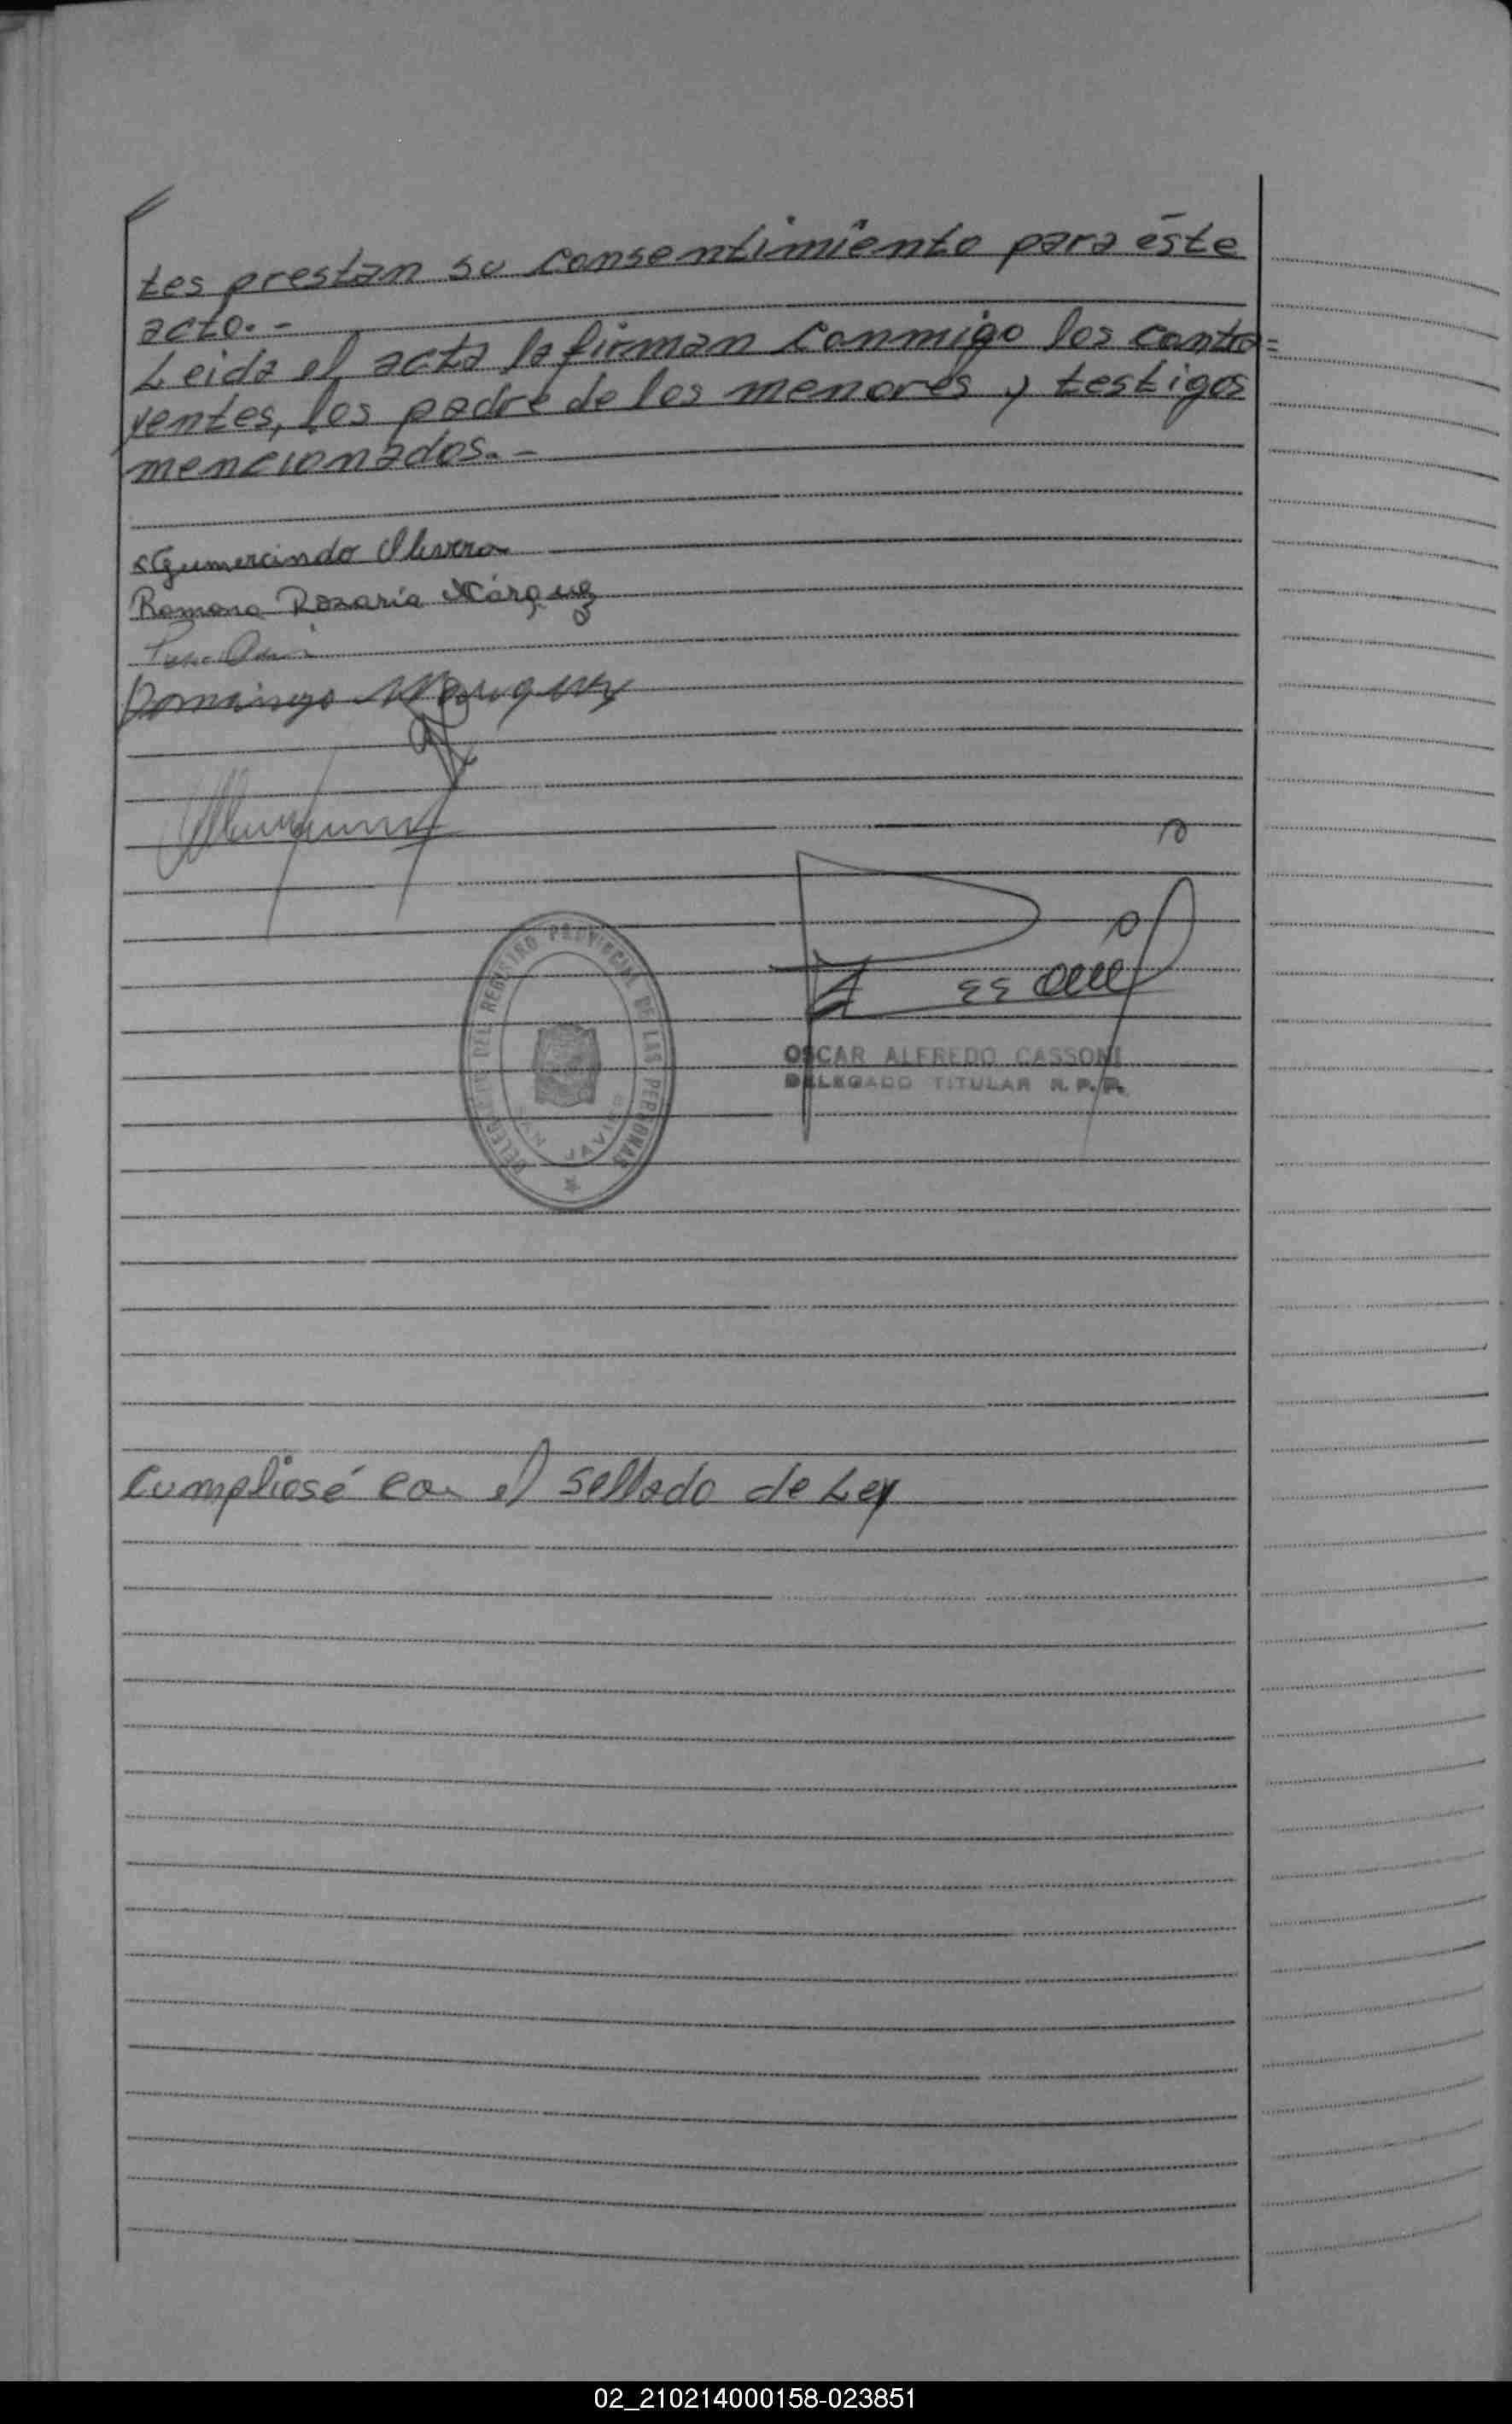 tes prestan su consentimiento para éste
acto. -
Leida el acta la firman conmigo los contra=
yentes, los padre de los menores y testigos
mencionados. -
Gumercindo Olivera
Ramona Rosaria Márquez
Domingo Marquez
DELEGACION DEL REGISTRO PROVINCIAL DE LAS PERSONAS
SAN JAVIER
OSCAR ALFREDO CASSONI
DELEGADO TITULAR R. P. P.
Cumpliosé con el sellado de Ley
02_210214000158-023851